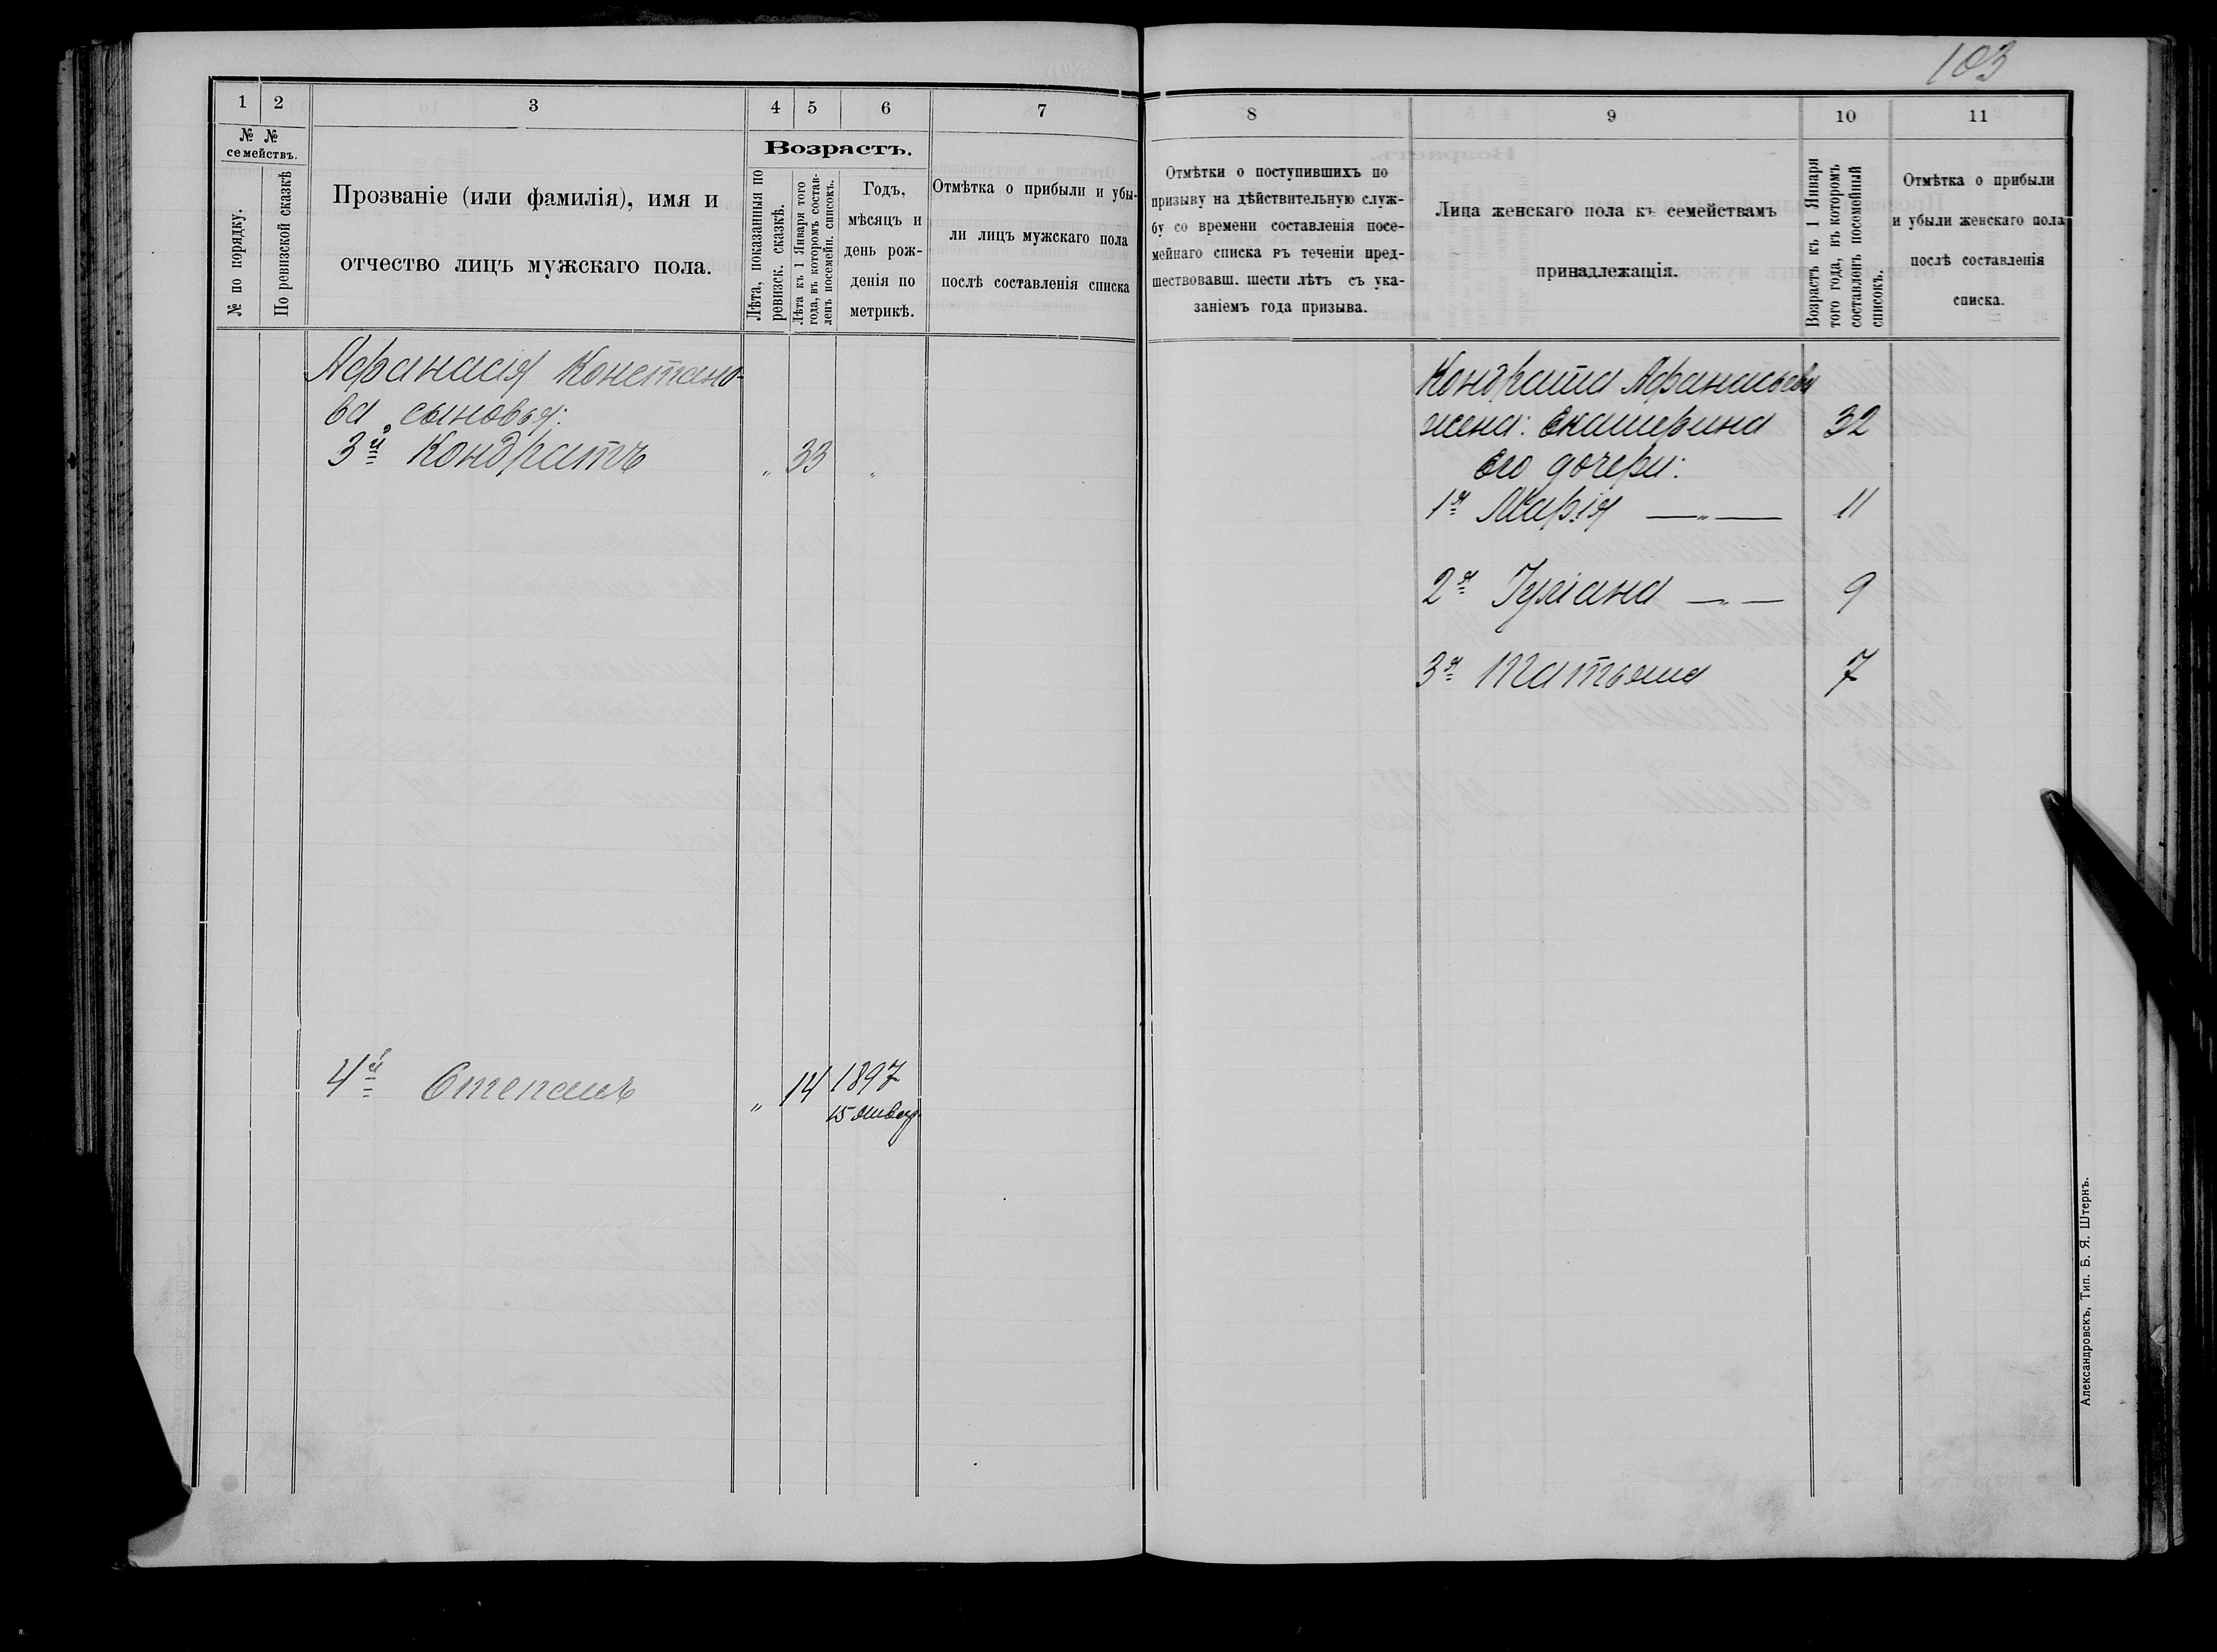 103
1
2
3
4
5
6
7
8
9
10
11
№ №
семействъ.
№ по порядку.
По ревизской сказкѣ
Прозваніе (или фамилія), имя и
отчество лицъ мужскаго пола.
Возрастъ.
Лѣта, показанныя по
ревизск. сказкѣ.
Лѣта къ 1 Января того
года, въ которомъ состав-
ленъ посемейн. списокъ.
Годъ,
мѣсяцъ и
день рож-
денія по
метрикѣ.
Отмѣтка о прибыли и убы-
ли лицъ мужскаго пола
послѣ составленія списка
Отмѣтки о поступившихъ по
призыву на дѣйствительную служ-
бу со времени составленія посе-
мейнаго списка въ теченіи пред-
шествовавш. шести лѣтъ съ ука-
заніемъ года призыва.
Лица женскаго пола къ семействамъ
принадлежащія.
Возрастъ къ 1 Января
того года, въ которомъ
составленъ посемейный
списокъ.
Отмѣтка о прибыли
и убыли женскаго пола
послѣ составленія
списка.
Афанасія Констано-
ва сыновья:
3й Кондратъ " 33 "
4й Степанъ " 14 1897
15 январ.
Кондрата Афанасьева
жена: Екатерина 32
Его дочери:
1я Марія —„— 11
2я Іуліана —„— 9
3я Татьяна 7
Александровскъ, Тип. Б. Я. Штернъ.